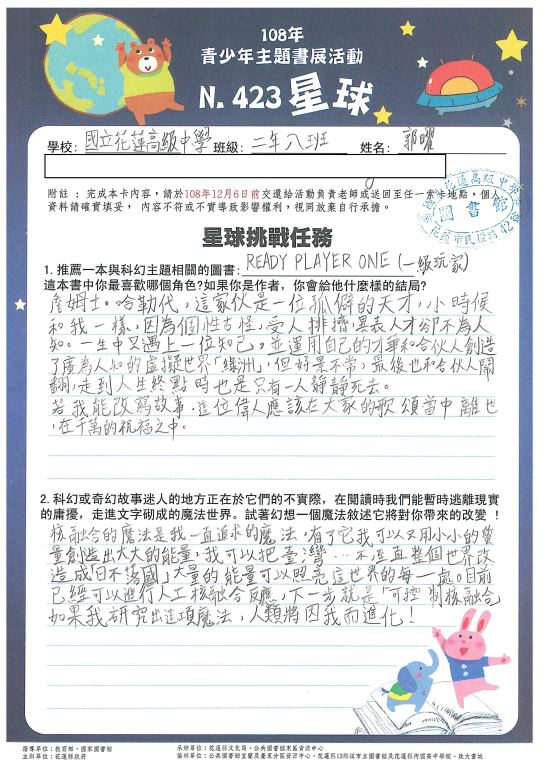 108年
青少年主題書展活動
N. 423 星球
學校: 國立花蓮高級中學 班級: 二年八班 姓名: 郭曜
附註 : 完成本卡內容，請於108年12月6日前交還給活動負責老師或送回至任一索卡地點，個人
資料請確實填妥， 內容不符或不實導致影響權利，視同放棄自行承擔。
圖書館
星球挑戰任務
1. 推薦一本與科幻主題相關的圖書: READY PLAYER ONE (一級玩家)
這本書中你最喜歡哪個角色?如果你是作者，你會給他什麼樣的結局?
詹姆士。哈勒代，這家伙是一位孤僻的天才，小時候
和我一樣，因為個性古怪，受人排擠，異表人才卻不為人
知。一生中又遇上一位知己，並運用自己的才華和合伙人創造
了廣為人知的虛擬世界「綠洲」，但好景不常，最後也和合伙人鬧
翻，走到人生終點時也是只有一人靜靜死去。
若我能改寫故事，這位偉人應該在大家的歌頌當中離世
，在千萬的祝福之中。
2. 科幻或奇幻故事迷人的地方正在於它們的不實際，在閱讀時我們能暫時逃離現實
的庸擾，走進文字砌成的魔法世界。試著幻想一個魔法敘述它將對你帶來的改變 !
核融合的魔法是我一直追求的魔法，有了它我可以又用小小的質
量創造出大大的能量，我可以把臺灣...不，互直整個世界改
造成「日不落國」大量的能量可以照亮這世界的每一處。目前
已經可以進行人工核融合反應，下一步就是「可控制核融合」
如果我研究出這項魔法，人類將因我而進化!
指導單位：教育部、國家圖書館
主辦單位：花蓮縣政府
承辦單位：花蓮縣文化局、公共圖書館東區資源中心
協辦單位：公共圖書館宜蘭及臺東分區資源中心、花蓮縣13鄉鎮市立圖書館及花蓮縣內國高中學校、政大書城